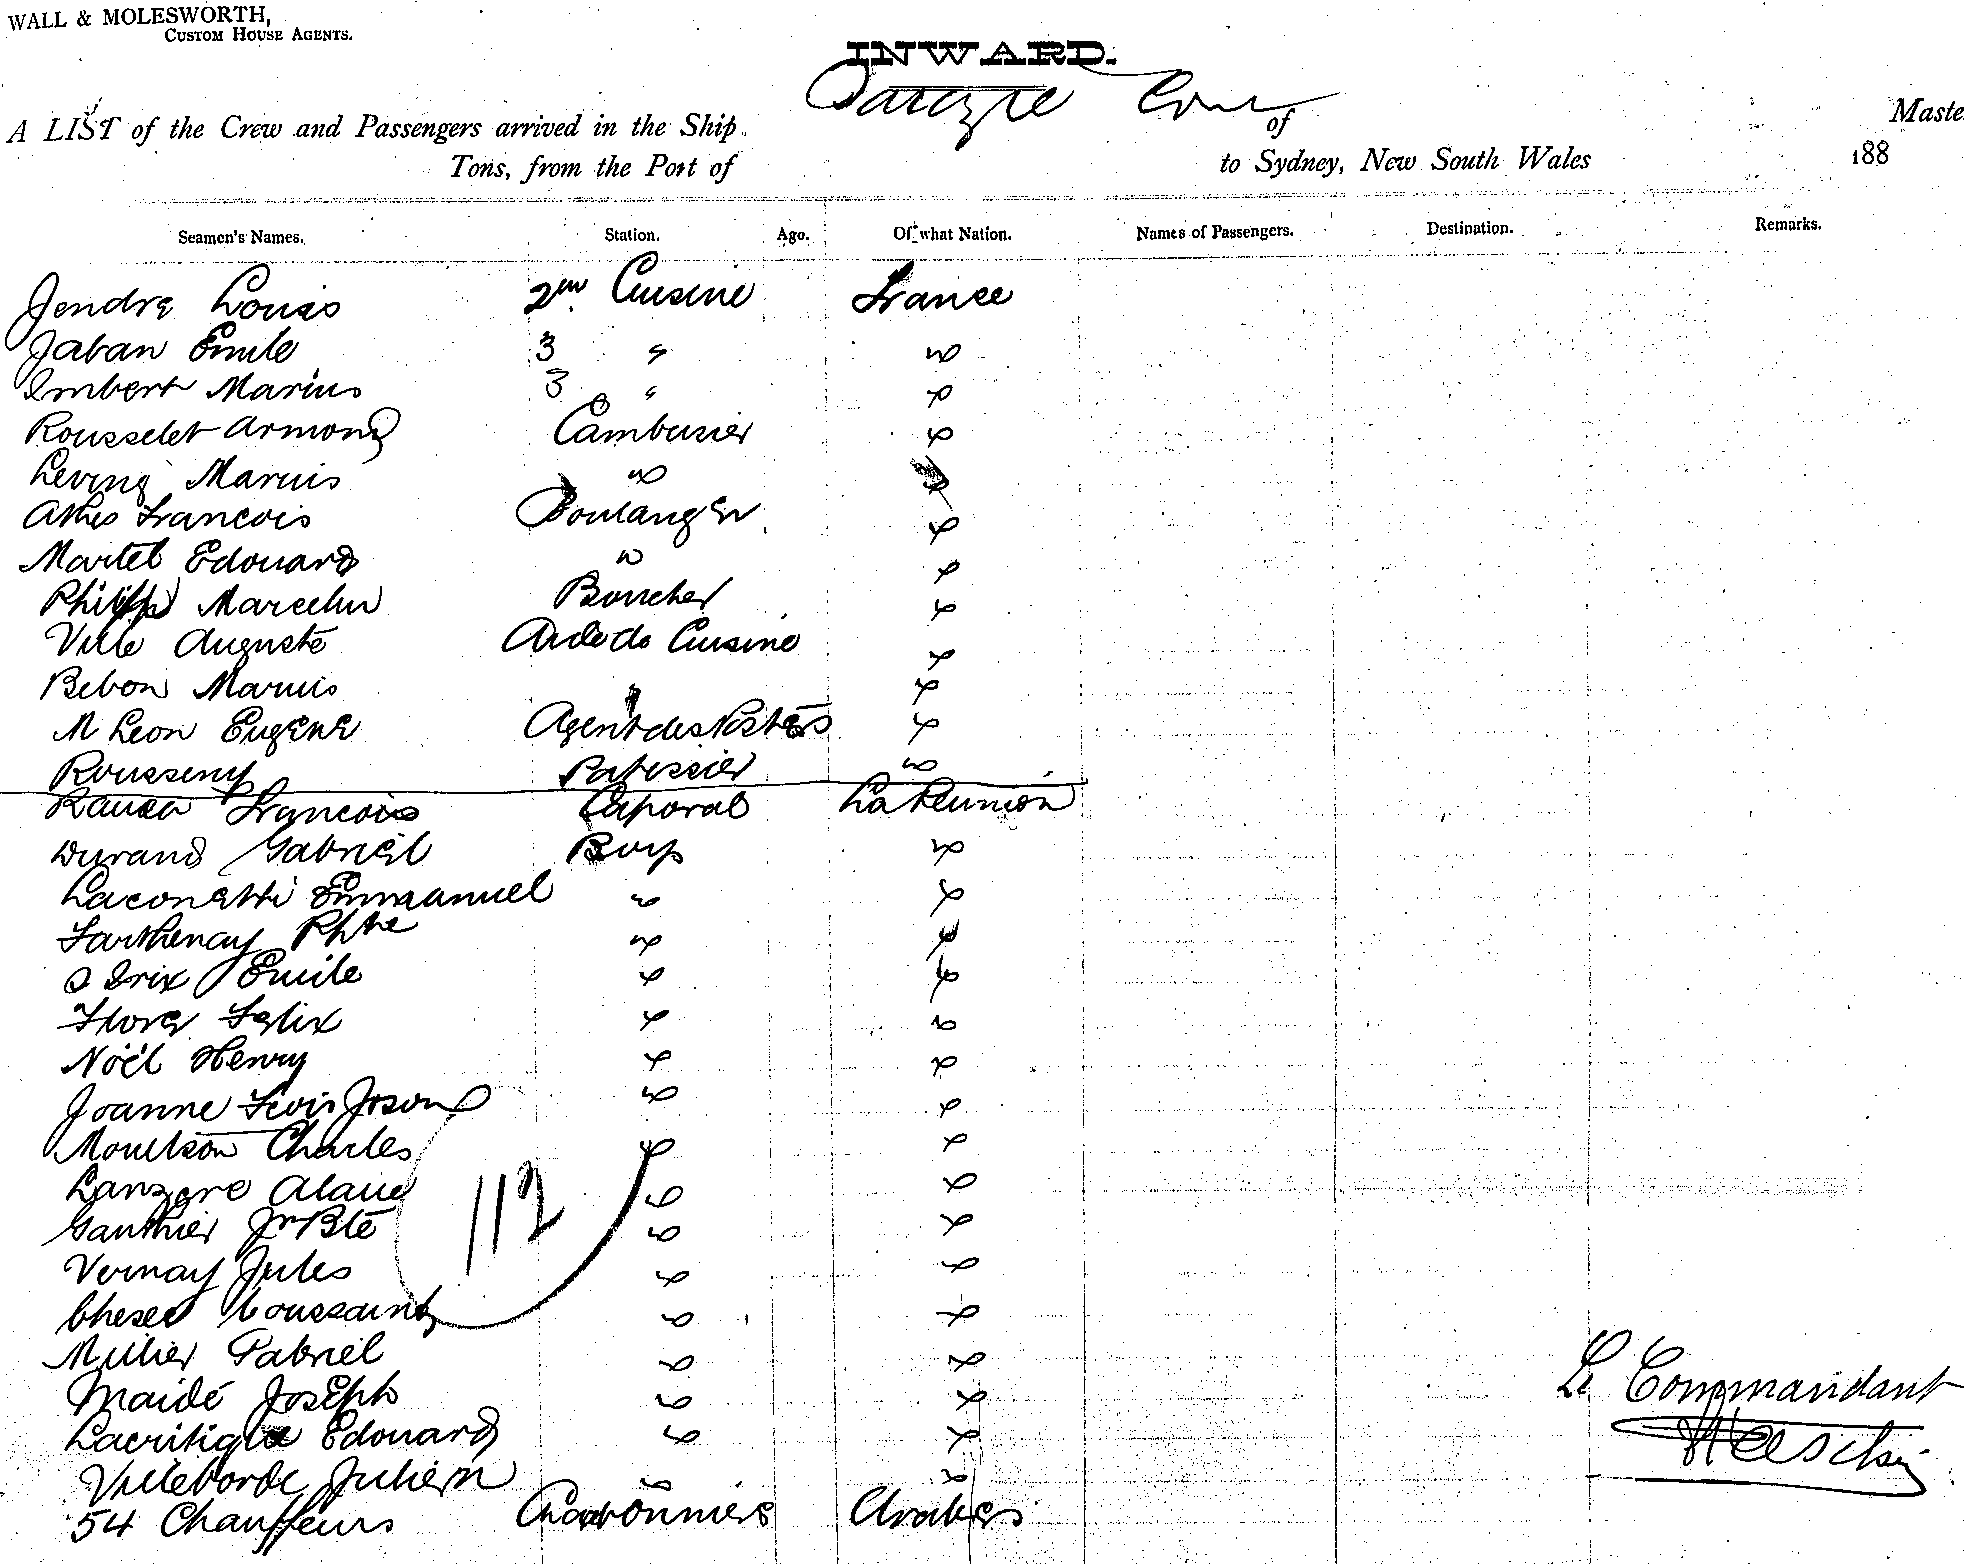 WALL & MOLESWORTH,
CUSTOM HOUSE AGENTS.
INWARD.
A LIST of the Crew and Passengers arrived in the Ship of Maste
Tons, from the Port of to Sydney, New South Wales 188
Seamen's Names. Station. Age. Of what Nation. Names of Passengers. Destination. Remarks.
Jendre Louis 2em Cuisine France
Jaban Emile 3 " "
Imbert Marius 3 " "
Rousselet Armond Cambusier "
Marius " "
Francois Boulanger "
Martel Edouard " "
Philipp Marcelin Boucher "
Ville Auguste Aide de Cuisine "
Bebon Marius " "
M Leon Eugene Agent des Postes "
Rousseny Patissier "
Francois Caporal La Reunion
Durand Gabriel Boys "
Laconetti Emmanuel " "
Parthenay " "
Emile " "
Flore Felix " "
Noël Henry " "
Joanne " "
Moulson Charles " "
" "
Gauthier Jn Bte " "
Vernay Jules " "
Toussaint " "
112
Gabriel " "
Maidé Joseph " "
Le Commandant
Lacritique Edouard " "
Villeborde Julien " "
54 Chauffeurs Charbonniers Arabes